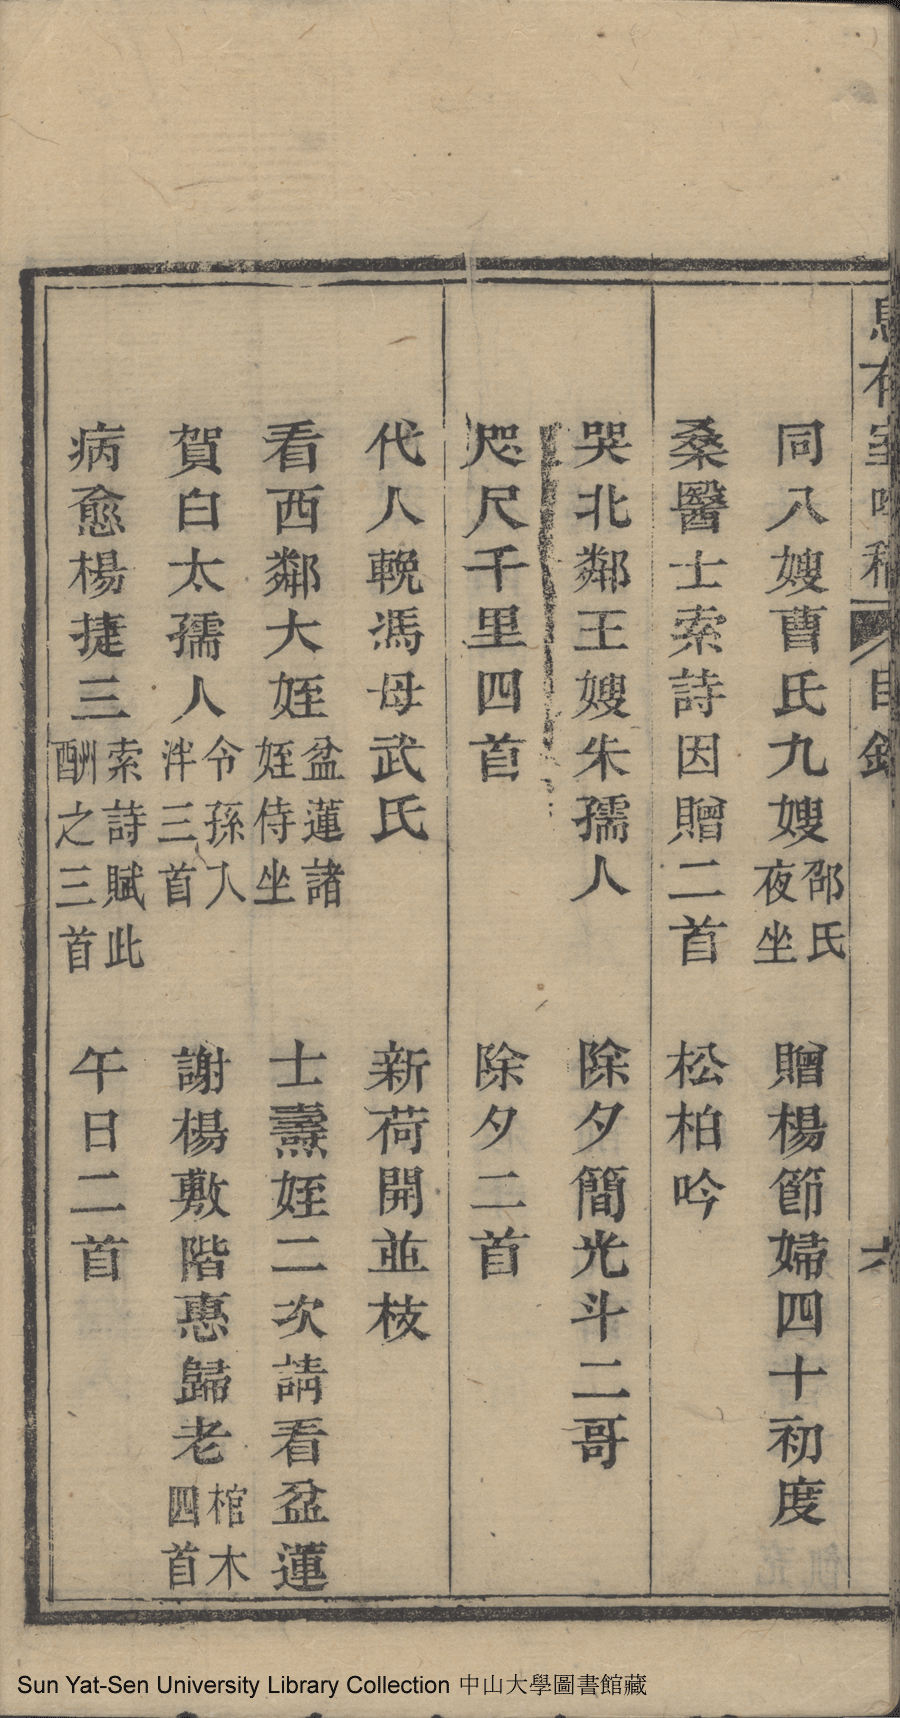 同八嫂曹氏九嫂邵氏夜坐　贈楊節婦四十初度
桑醫士索詩因贈二首　松柏吟
哭北鄰王嫂朱孺人　除夕簡光斗二哥
咫尺千里四首　除夕二首
代人輓馮母武氏　新荷開並枝
看西鄰大姪盆蓮諸姪侍坐　士燾姪二次請看盆蓮
賀白太孺人令孫入泮三首　謝楊敷階惠歸老棺木四首
病愈楊捷三索詩賦此酬之三首　午日二首
Sun Yat-Sen University Library Collection 中山大學圖書館藏